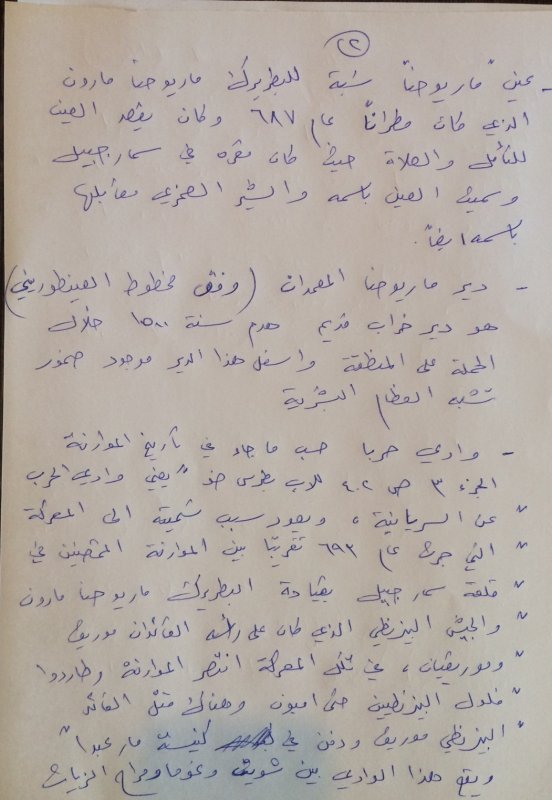 ٢٢
- عين "مار يوحنا" نسبة للبطريرك مار يوحنا مارون
الذي كان مطراناً عام ٦٨٧ وكان يقصد العين
للتأمل والصلاة حيث كان مقره في سمار جبيل
وسميت العين باسمه والشير الصخري مقابلها
باسمه ايضاً.
- دير مار يوحنا المعمدان (وفق مخطوط العينطوريني)
هو دير خراب قديم هدم سنة ١٥٠٠ خلال
الحملة على المنطقة واسفل هذا الدير موجود صخور
تشبه العظام البشرية
- وادي حربا حسب ما جاء في تاريخ الموارنة
الجزء ٣ ص ٤٠٢ للاب بطرس ضو "يعني وادي الحرب
" عن السريانية، ويعود سبب تسميته الى المعركة
" التي جرت عام ٦٩٣ تقريباً بين الموارنة المتحصنين في
" قلعة سمار جبيل بقيادة البطريرك مار يوحنا مارون
" والجيش البيزنطي الذي كان على رأسه القائدان موريق
" وموريقيان، في تلك المعركة انتصر الموارنة وطاردوا
" فلول البيزنطيين حتى اميون وهناك قتل القائد
" البيزنطي موريق ودفن في كنيسة مار عبدا"
ويقع هذا الوادي بين شويت وغوما ومراح الزيات